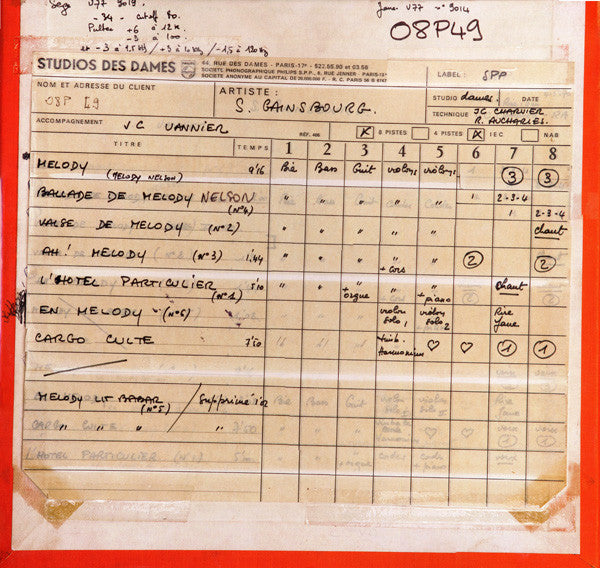 Sego V77 9019.
-34 - cutoff 80.
Pultec +6 à 12K.
-3 à 100
et -3 à 1.5 kH / +3 à 10kHz / -1,5 à 120Hz
Jane V77 - n° 9014
08P49
STUDIOS DES DAMES
44, RUE DES DAMES - PARIS-17e - 522.55.90 et 63.58
SOCIÉTÉ PHONOGRAPHIQUE PHILIPS S.P.P., 6, RUE JENNER - PARIS-13e
LABEL : SPP
NOM ET ADRESSE DU CLIENT
08P 49
ARTISTE :
S. GAINSBOURG.
STUDIO dames DATE
TECHNIQUE JC CHARVIER
R. AUCHARLES.
ACCOMPAGNEMENT JC VANNIER
RÉF. 405 X 8 PISTES 4 PISTES X IEC NAB
TITRE TEMPS 1 2 3 4 5 6 7 8
MELODY (MELODY NELSON) 9'16 Bie Bass Guit violons violons 3 3
BALLADE DE MELODY NELSON (N°4) " " " " " 2-3-4
1 2-3-4
VALSE DE MELODY (N°2) " " " " chaut
AH! MELODY (N°3) 1.44 " " " " + Cors " 2 2
L'HOTEL PARTICULIER (N°1) 5'10 " " " + orgue " " + piano Chaut
EN MELODY (N°6) violon solo 1 violon solo 2 Rire Jane
CARGO CULTE 7'50 Harmonium ♡ ♡ 1 1
MELODY LIT BABAR (N°5) / Supprimé Bie Bass Guit violon violon
CARGO CULTE 7'50 ♡ ♡ 1
HOTEL PARTICULIER (N°1) + orgue + piano